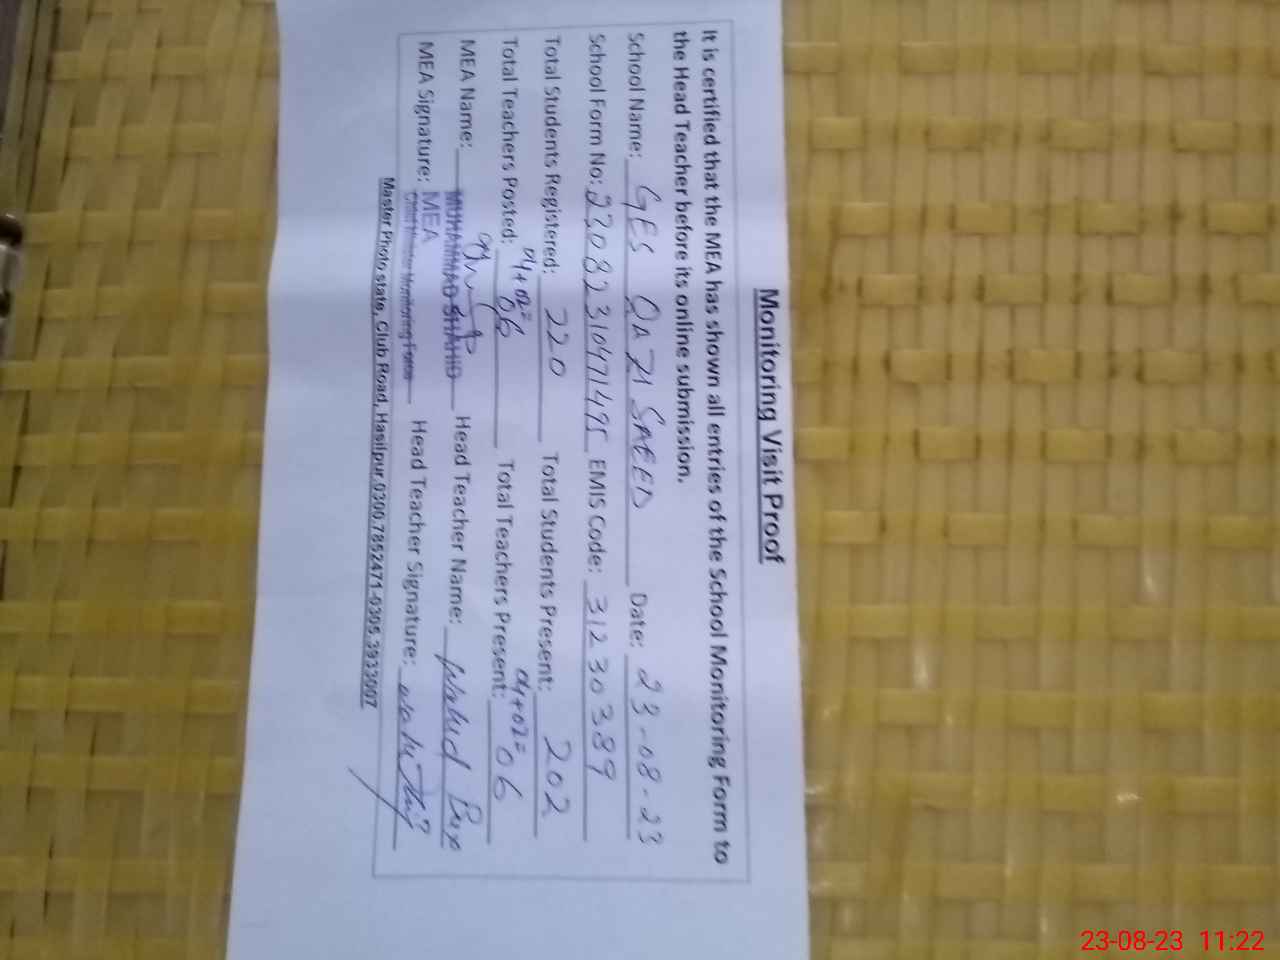 Monitoring Visit Proof
It is certified that the MEA has shown all entries of the School Monitoring Form to
the Head Teacher before its online submission.
School Name: GES QAZI SAEED Date: 23-08-23
School Form No: 2208231047149 EMIS Code: 31230389
Total Students Registered: 220 Total Students Present: 202
Total Teachers Posted: 04+02=06 Total Teachers Present: 04+02=06
MEA Name: MUHAMMAD SHAHID Head Teacher Name: Wahid Bux
MEA Signature: MEA Head Teacher Signature:
Chief Minister Monitoring Force
Master Photo state, Club Road, Hasilpur.0300.7852471-0305.3933007
23-08-23 11:22